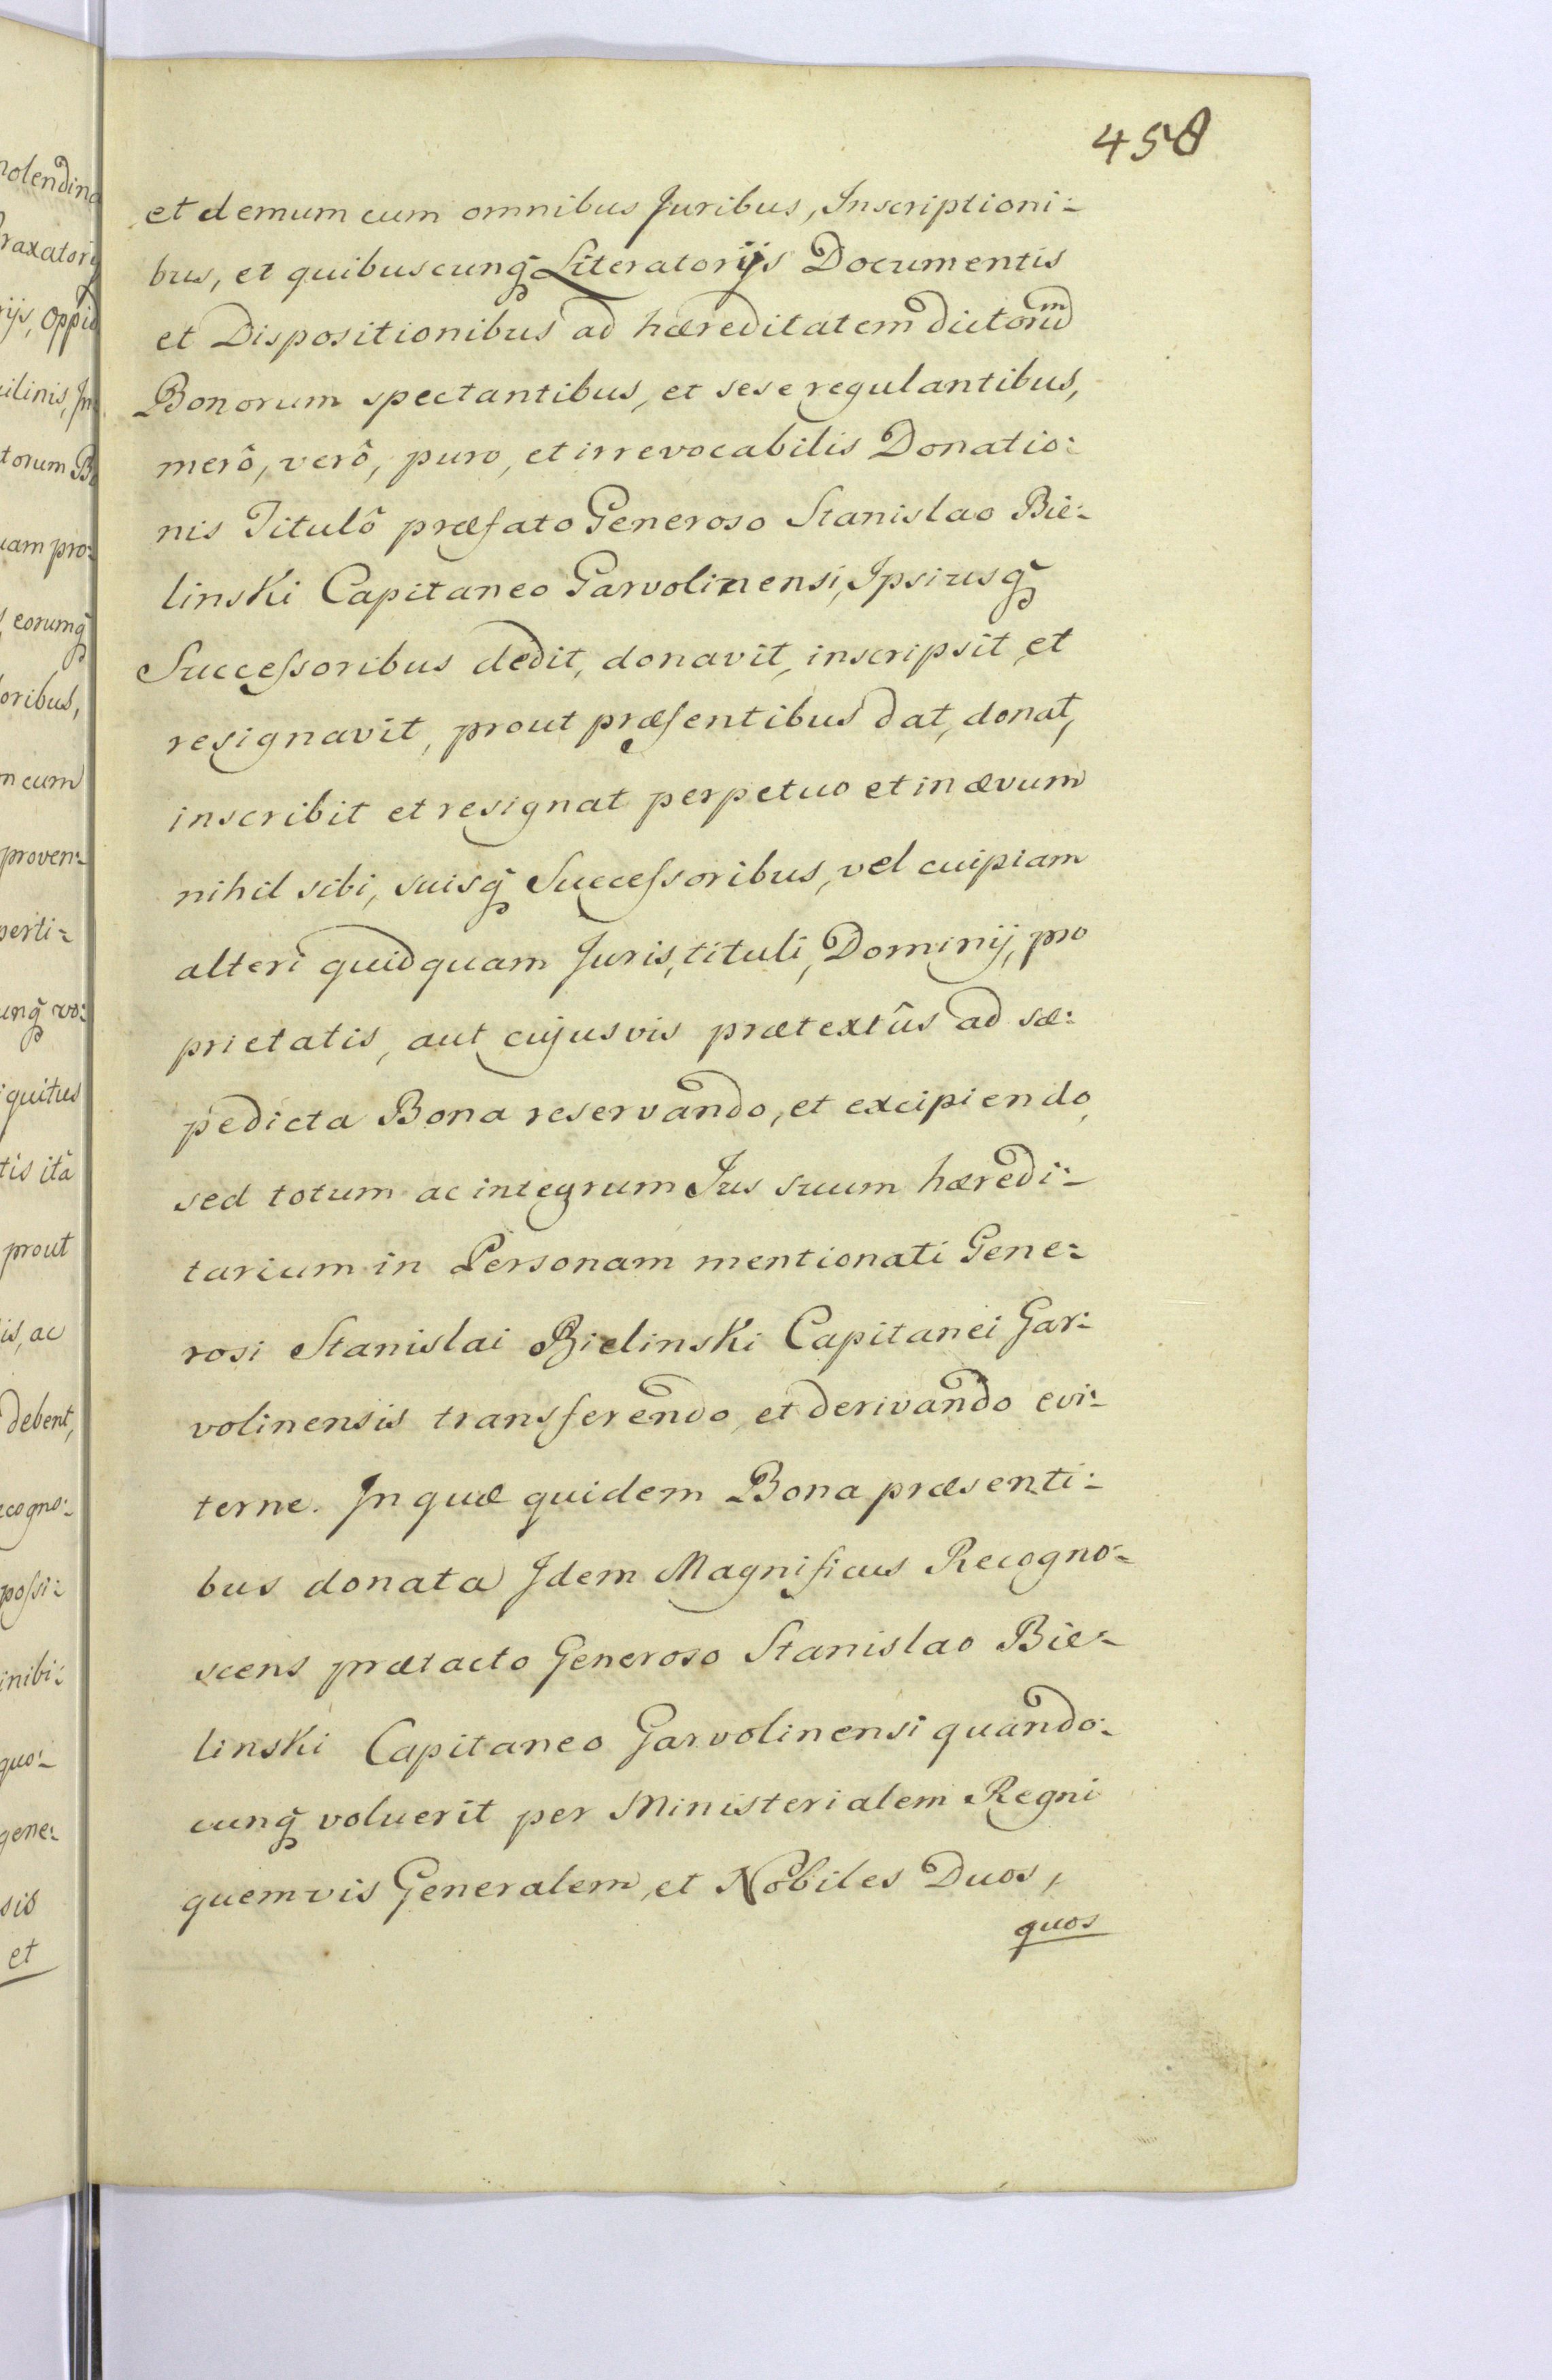 458
et demum cum omnibus Juribus, Inscriptioni:
bus, et quibuscunq̃ Literatorijs Documentis
et Dispositionibus ad hæreditatem dictorũm
Bonorum spectantibus, et sese regulantibus,
merô, verô, puro, et irrevocabilis Donatio:
nis Titulô præfato Generoso Stanislao Bie:
linski Capitaneo Garvolinensi, Ipsiusq̃
Succeſsoribus dedit, donavit, inscripsit, et
resignavit, prout præſentibus dat, donat,
inscribit et resignat perpetuo et in ævum
nihil sibi, suisq̃ Succeſsoribus, vel cuipiam
alteri quidquam Juris, tituli, Dominij, pro
prietatis, aut cujusvis prætextûs ad sæ:
pedicta Bona reservando, et excipiendo,
sed totum ac integrum Jus suum hæredi:
tarium in Personam mentionati Gene:
rosi Stanislai Bielinski Capitanei Gar:
volinensis transferendo, et derivando evi:
terne. In quæ quidem Bona præsenti:
bus donata Idem Magnificus Recogno:
scens prætacto Generoso Stanislao Bie:
linski Capitaneo Garvolinensi quando:
cunq̃ voluerit per Ministerialem Regni
quemvis Generalem, et Nobiles Duos,
quos
molendina
raxatorij
rijs, Oppid
uilinis, In
torum Bo
uam pro:
eorumq̃
oribus,
m cum
proven:
perti:
unq̃ vo:
iquitus
tis itâ
prout
is, ac
debent,
ecogno:
poſsi:
inibi:
quo:
gene:
sis
et